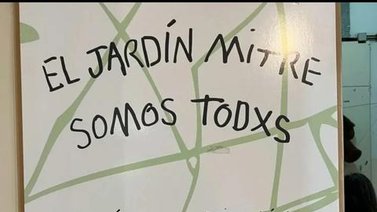 EL JARDÍN MiTRE
SOMOS TODXS